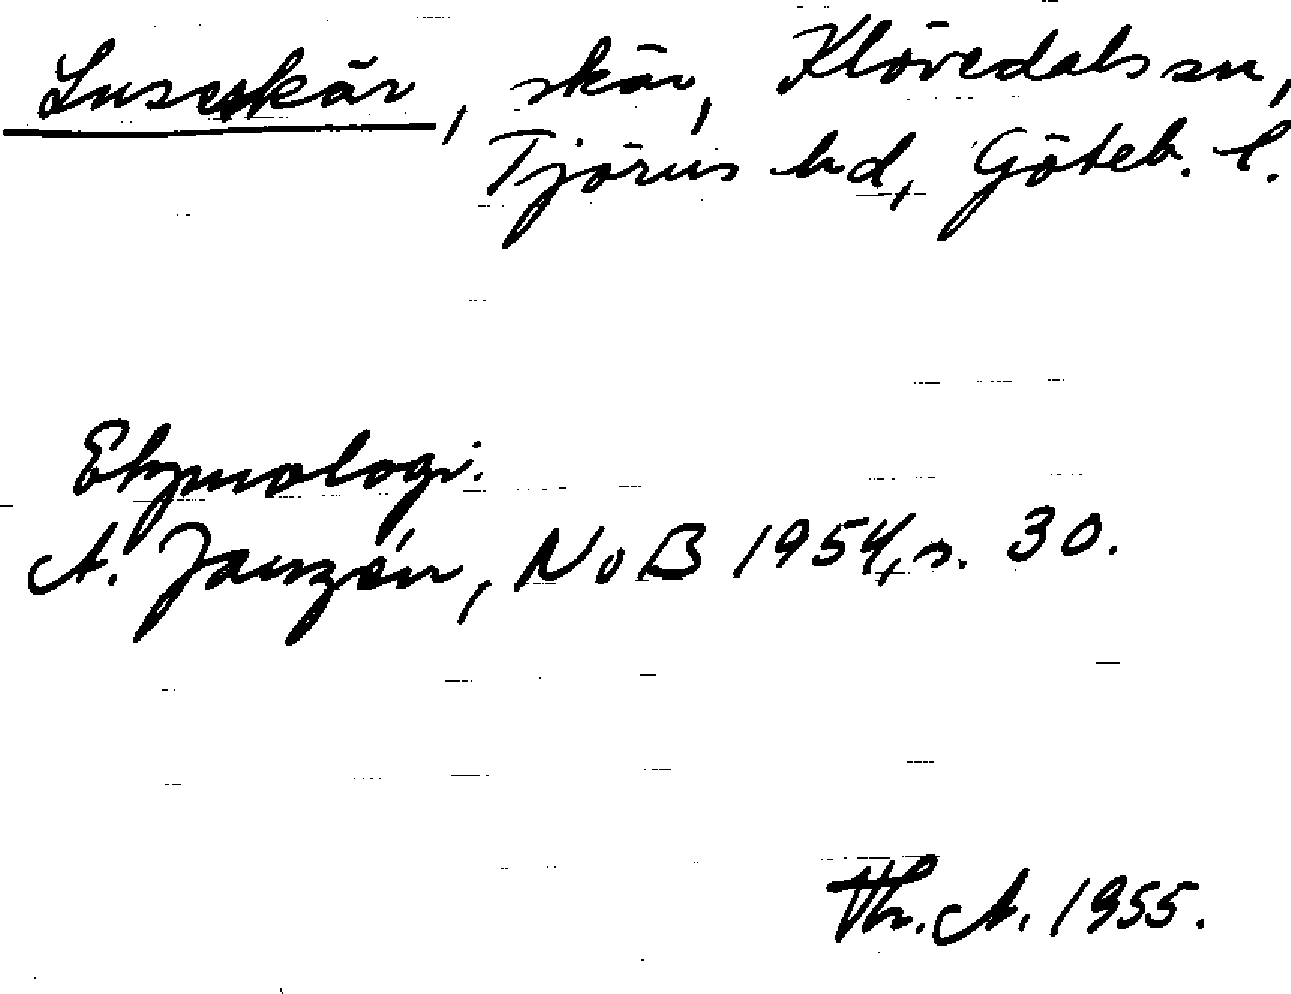 Luseskär, skär, Klövedals sn,
Tjörns hd, Göteb. l.
Etymologi.
A. Janzén, NoB 1954, s. 30.
Th. A. 1955.